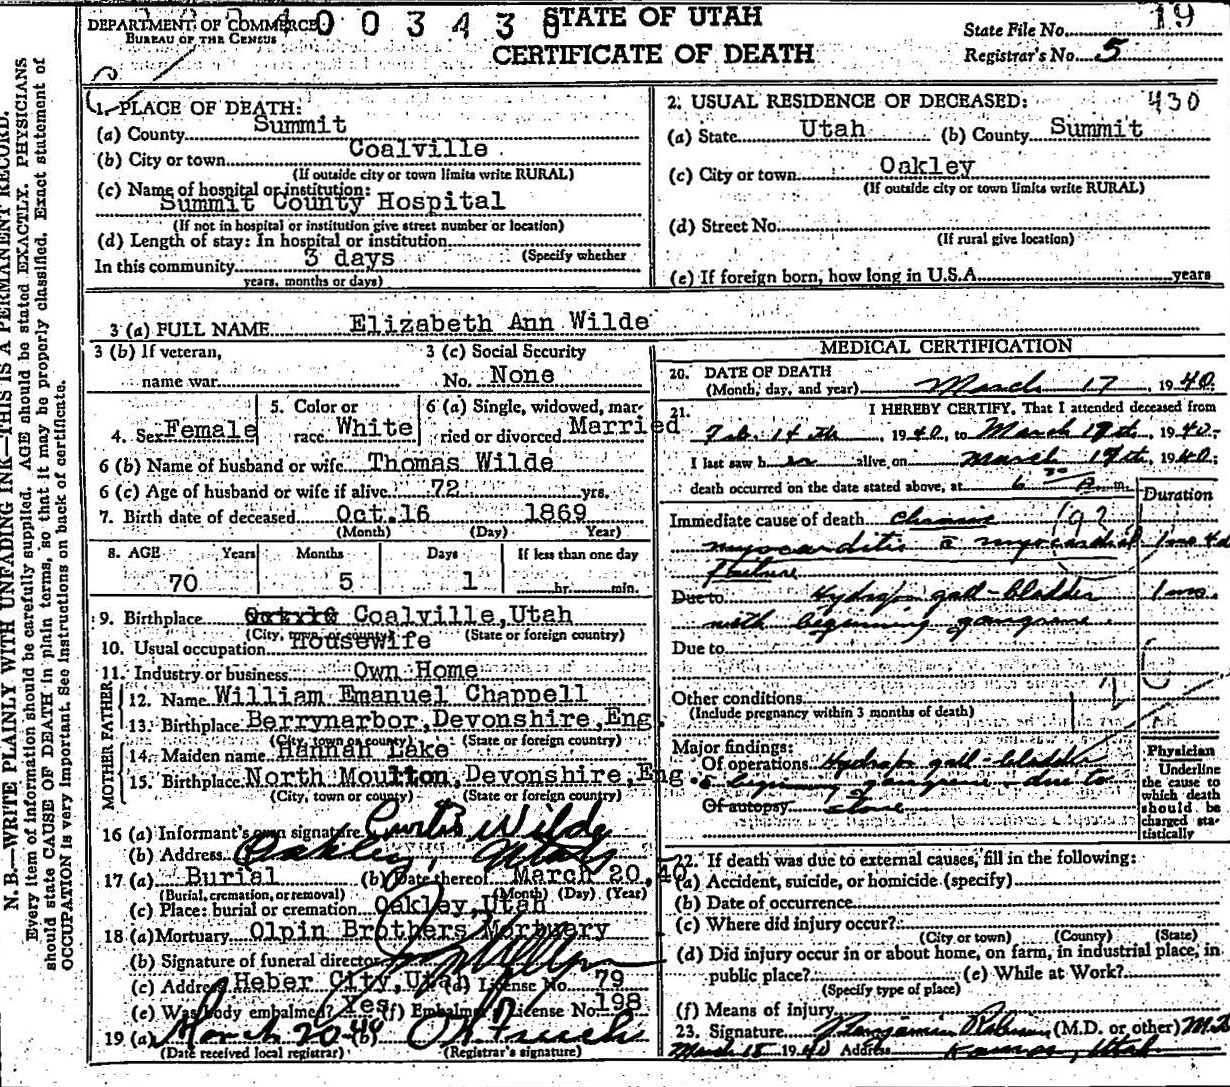 DEPARTMENT OF COMMERCE
BUREAU OF THE CENSUS
STATE OF UTAH
CERTIFICATE OF DEATH
State File No. 19
Registrar's No. 5
N. B.—WRITE PLAINLY WITH UNFADING INK—THIS IS A PERMANENT RECORD.
Every item of information should be carefully supplied. AGE should be stated EXACTLY. PHYSICIANS
should state CAUSE OF DEATH in plain terms, so that it may be properly classified. Exact statement of
OCCUPATION is very important. See instructions on back of certificate.
1. PLACE OF DEATH:
(a) County Summit
(b) City or town Coalville
(If outside city or town limits write RURAL)
(c) Name of hospital or institution:
Summit County Hospital
(If not in hospital or institution give street number or location)
(d) Length of stay: In hospital or institution
(Specify whether
In this community 3 days
years, months or days)
2. USUAL RESIDENCE OF DECEASED: 430
(a) State Utah (b) County Summit
(c) City or town Oakley
(If outside city or town limits write RURAL)
(d) Street No.
(If rural give location)
(e) If foreign born, how long in U.S.A. years
3 (a) FULL NAME Elizabeth Ann Wilde
3 (b) If veteran,
name war
3 (c) Social Security
No. None
4. Sex Female
5. Color or
race White
6 (a) Single, widowed, mar-
ried or divorced Married
6 (b) Name of husband or wife Thomas Wilde
6 (c) Age of husband or wife if alive 72 yrs.
7. Birth date of deceased Oct. 16 1869
(Month) (Day) Year)
8. AGE Years Months Days If less than one day
70 5 1 hr. min.
9. Birthplace Coalville, Utah
(City, town or county) (State or foreign country)
10. Usual occupation Housewife
11. Industry or business Own Home
FATHER
12. Name William Emanuel Chappell
13. Birthplace Berrynarbor, Devonshire, Eng.
(City, town or county) (State or foreign country)
MOTHER
14. Maiden name Hannah Lake
15. Birthplace North Moulton, Devonshire, Eng.
(City, town or county) (State or foreign country)
16 (a) Informant's own signature Curtis Wilde
(b) Address Oakley, Utah
17 (a) Burial (b) Date thereof March 20, 40
(Burial, cremation, or removal) (Month) (Day) (Year)
(c) Place: burial or cremation Oakley, Utah
18 (a) Mortuary Olpin Brothers Mortuary
(b) Signature of funeral director
(c) Address Heber City, Utah (d) License No. 79
(e) Was body embalmed? Yes (f) Embalmer License No. 198
19 (a) March 20-40 (b)
(Date received local registrar) (Registrar's signature)
MEDICAL CERTIFICATION
20. DATE OF DEATH
(Month, day, and year) March 17, 1940
21. I HEREBY CERTIFY, That I attended deceased from
Feb. 14th, 1940, to March 17th, 1940.
I last saw her alive on March 17th, 1940;
death occurred on the date stated above, at 6 A. m.
Duration
Immediate cause of death chronic
myocarditis c myocardial 1 mo 4 d
failure
Due to Hydrops gall-bladder 1 mo.
with beginning gangrene.
Due to
Other conditions
(Include pregnancy within 3 months of death)
Major findings:
Of operations Hydrops gall-bladder
c beginning gangrene due to
Of autopsy stone
Physician
Underline
the cause to
which death
should be
charged sta-
tistically
22. If death was due to external causes, fill in the following:
(a) Accident, suicide, or homicide (specify)
(b) Date of occurrence
(c) Where did injury occur?
(City or town) (County) (State)
(d) Did injury occur in or about home, on farm, in industrial place, in
public place? (e) While at Work?
(Specify type of place)
(f) Means of injury
23. Signature Benjamin (M.D. or other) M.D.
March 18 1940 Address Kamas, Utah